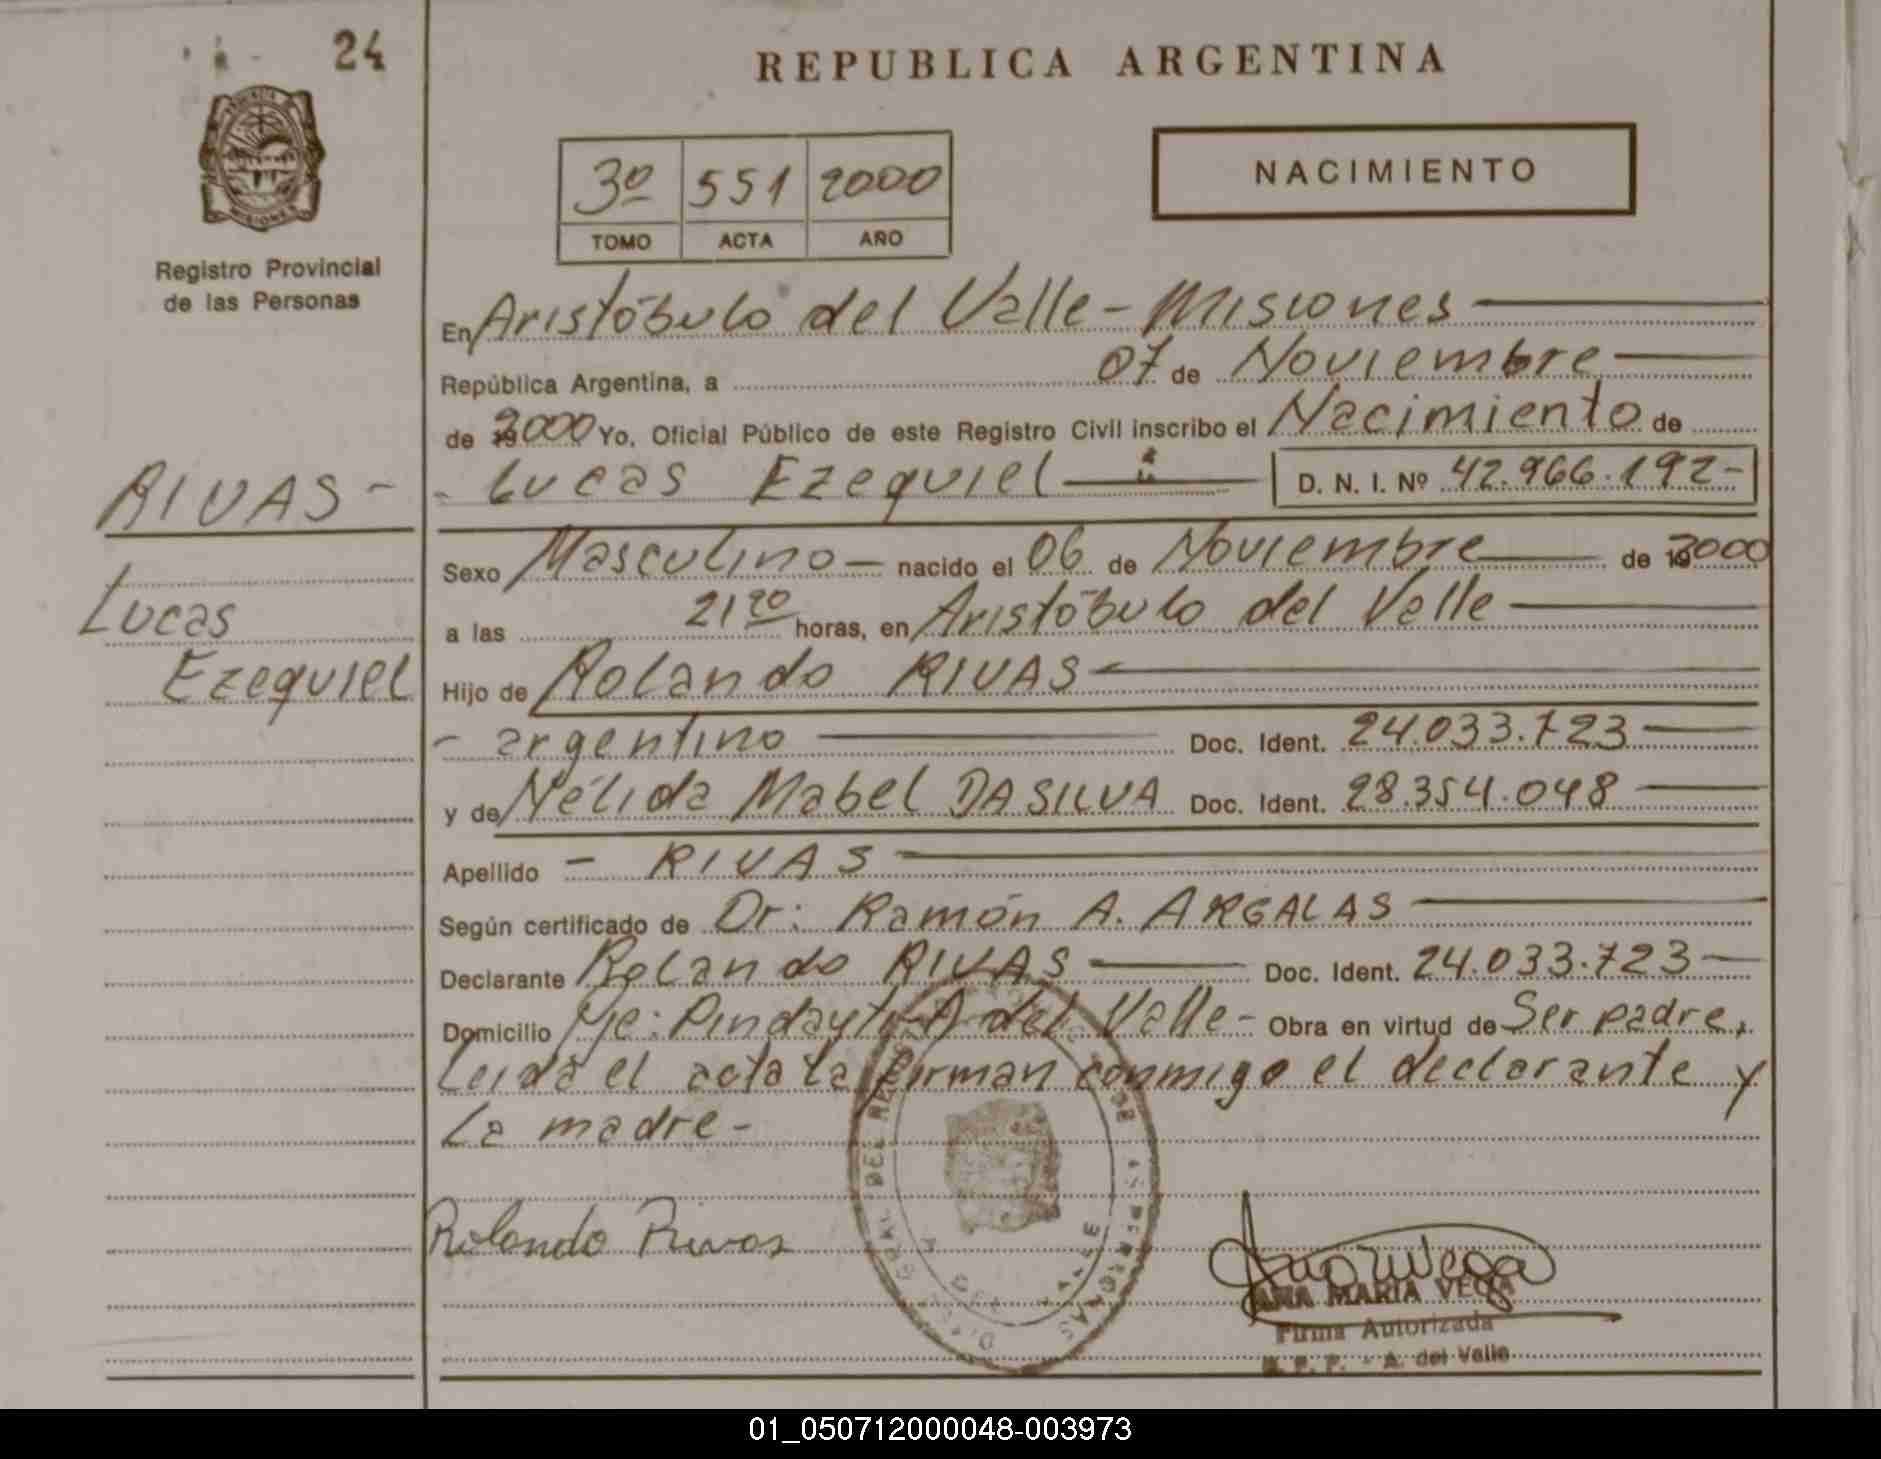 24
REPUBLICA ARGENTINA
3º 551 2000
TOMO ACTA AÑO
NACIMIENTO
MISIONES
Registro Provincial
de las Personas
En Aristóbulo del Valle - Misiones
República Argentina, a 07 de Noviembre
de 2000 Yo, Oficial Público de este Registro Civil inscribo el Nacimiento de
- Lucas Ezequiel D. N. I. Nº 42.966.192-
RIVAS -
Lucas
Ezequiel
Sexo Masculino - nacido el 06 de Noviembre de 2000
a las 21 20 horas, en Aristóbulo del Valle
Hijo de Rolando RIVAS
- argentino Doc. Ident. 24.033.723
y de Nélida Mabel DA SILVA Doc. Ident. 28.354.048
Apellido - RIVAS
Según certificado de Dr: Ramón A. ARGALAS
Declarante Rolando RIVAS Doc. Ident. 24.033.723
Domicilio Pindayti - A del Valle - Obra en virtud de Ser padre,
Leída el acta la firman conmigo el declarante y
La madre -
Rolando Rivas
ANA MARIA VEGA
Firma Autorizada
R. P. P. - A. del Valle
01_050712000048-003973